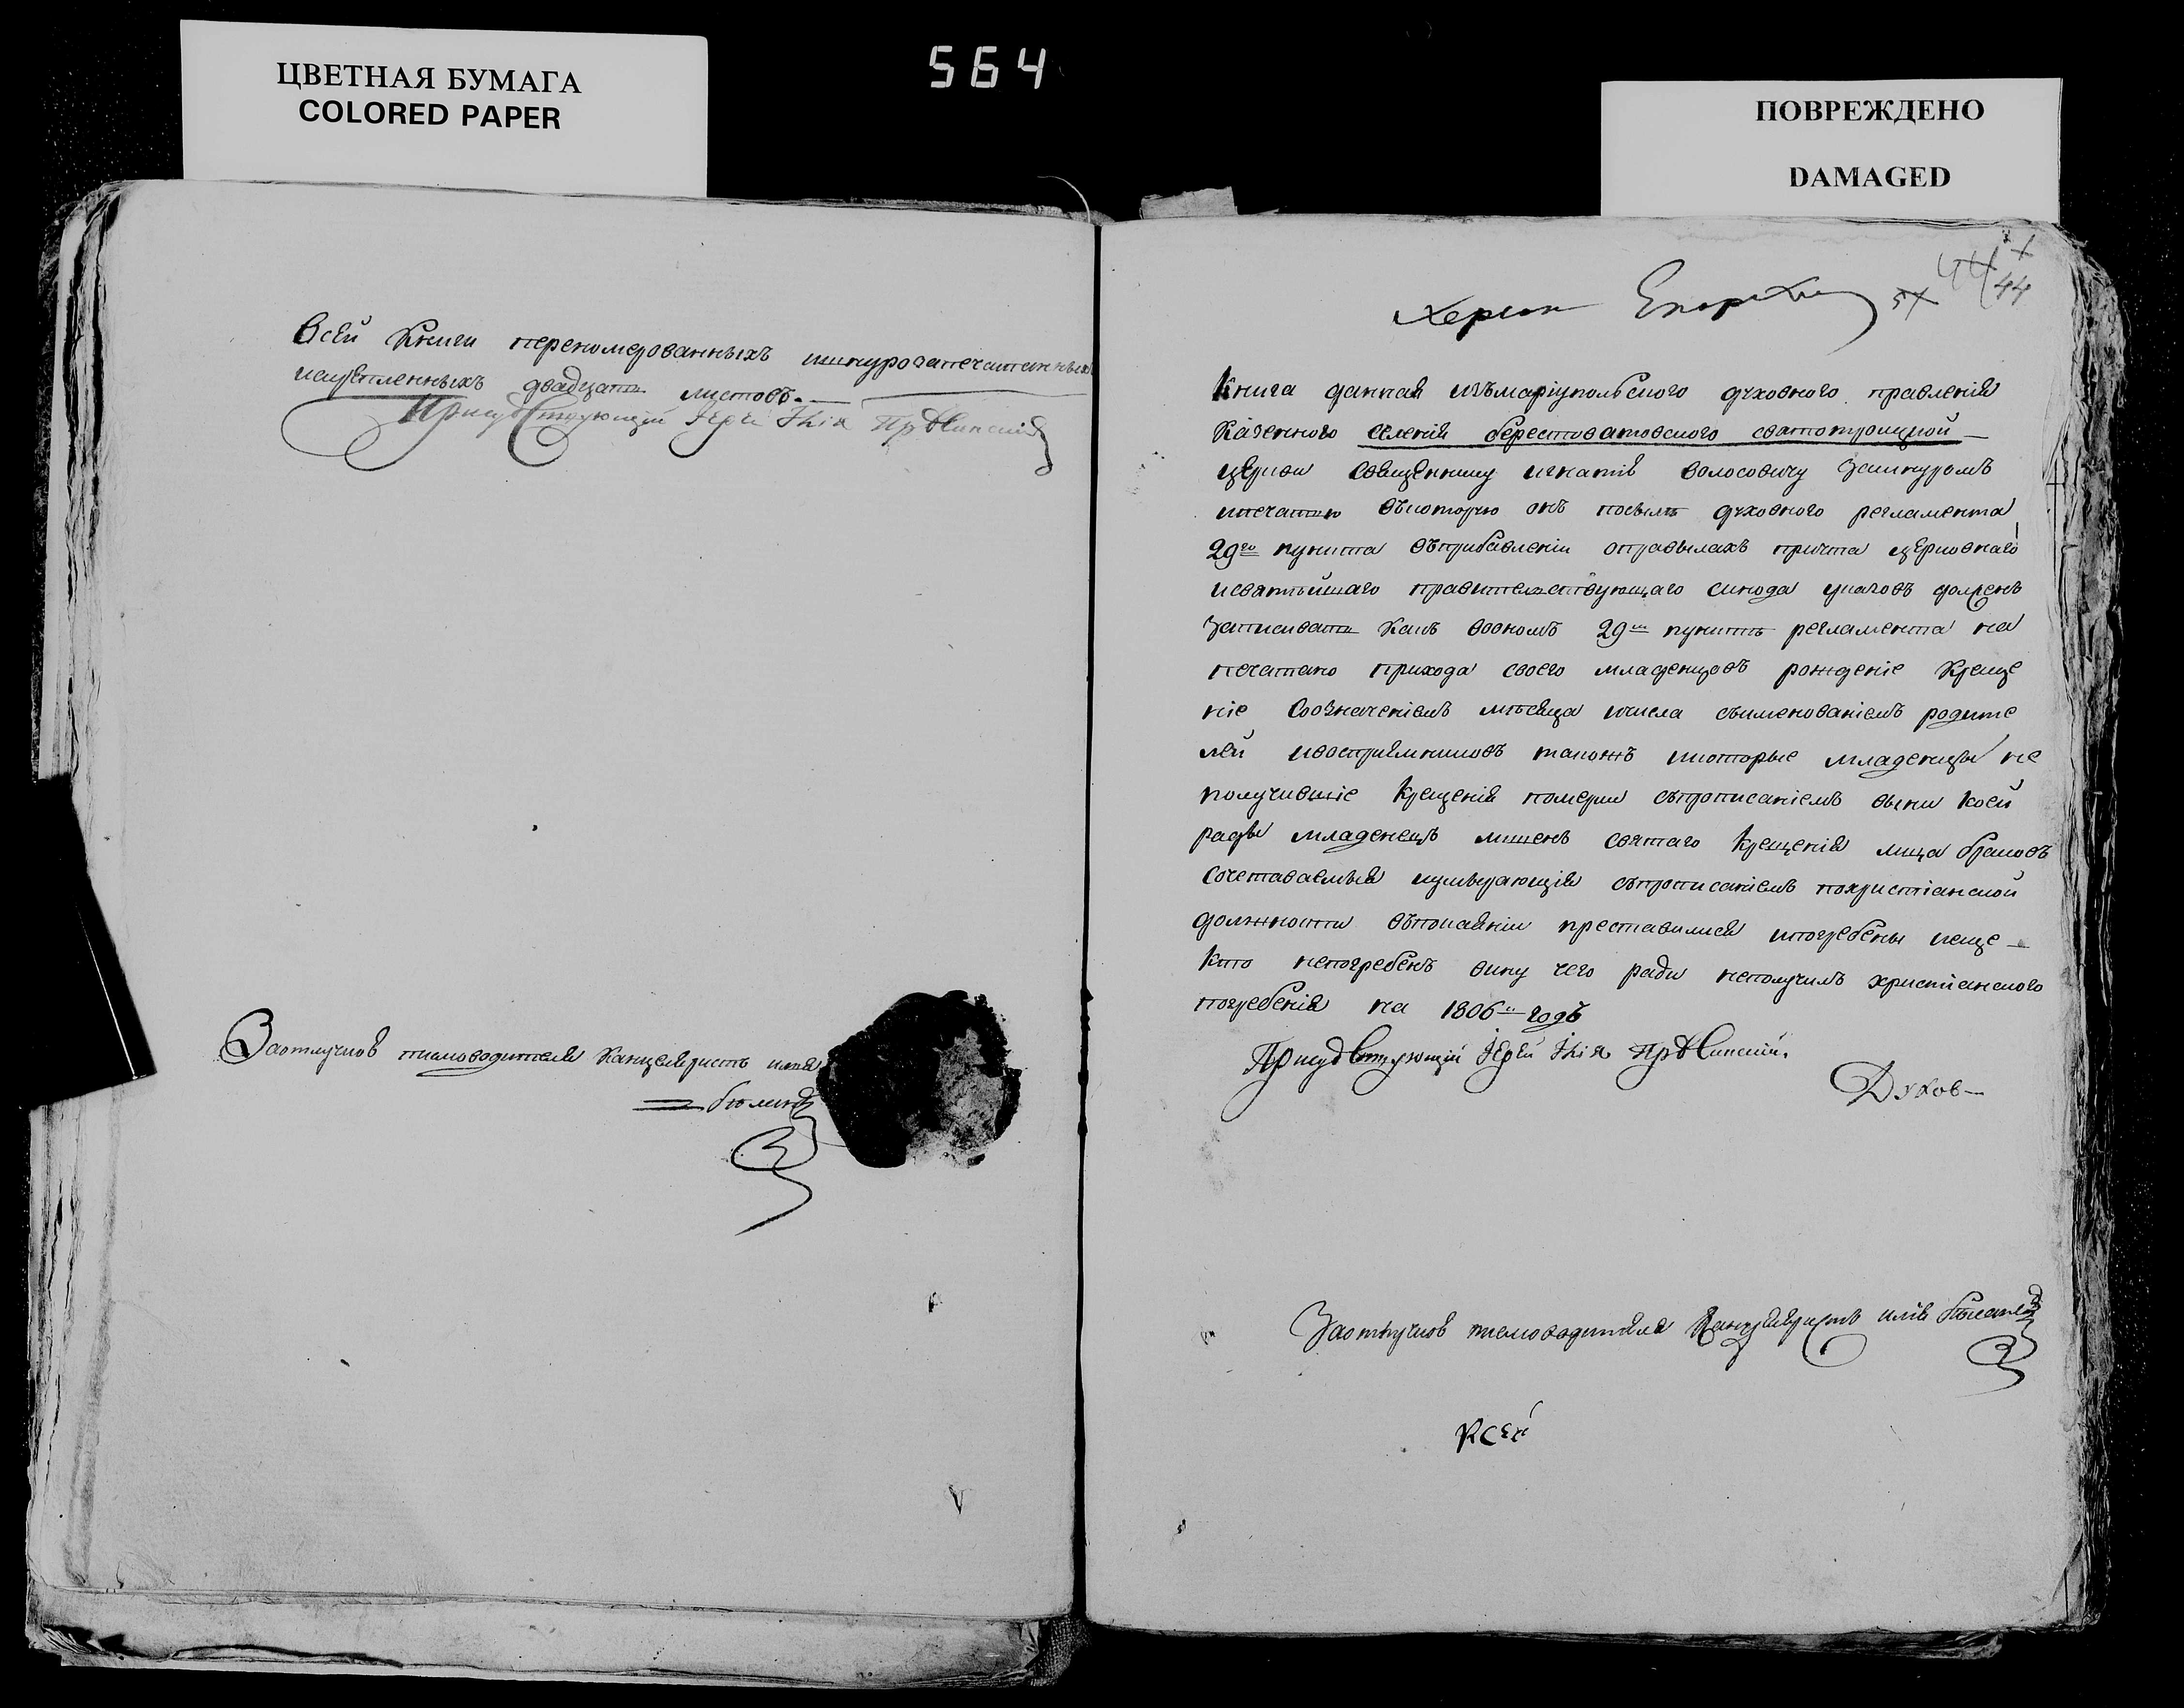 ЦВЕТНАЯ БУМАГА
COLORED PAPER
564
ПОВРЕЖДЕНО
DAMAGED
Всей Книги переномерованныхъ шнурозапечатанныхъ
двадцать листовъ.
Присудствующій Іерей
Заотлучкою писмоводителя Канцеляристъ
44
44
Книга данная изъмаріупольского духовного правленія
Казенного селенія берестоватовского святотроицкой
церкви священнику игнатію волосовичу зашнуромъ
ипечатью вкоторую онъ посилѣ духовного регламента
29го пункта въприбавленіи оправилахъ причта церковнаго
исвятѣйшаго правителствующаго синода указовъ долженъ
записивать Какъ воономъ 29м пунктѣ регламента на
печатано прихода своего младенцовъ рожденіе Креще
ніе Созначеніемъ мѣсяца ичисла съименованіемъ родите
лей ивоспріемниковъ такожъ икоторые младенцы не
получившіе Крещенія померли съпрописаніемъ вины коей
рады младенецъ лишенъ святаго Крещенія лица браковъ
Сочетаваемыя иумирающія съпрописаніемъ похристіанской
должности въпокаяніи преставилися ипогребены иеще
Кто непогребенъ вину чего ради неполучилъ христіанского
погребенія на 1806й годъ
Присудствующій Іерей
Духов
Заотлучкою писмоводителя Канцеляристъ
Ксей